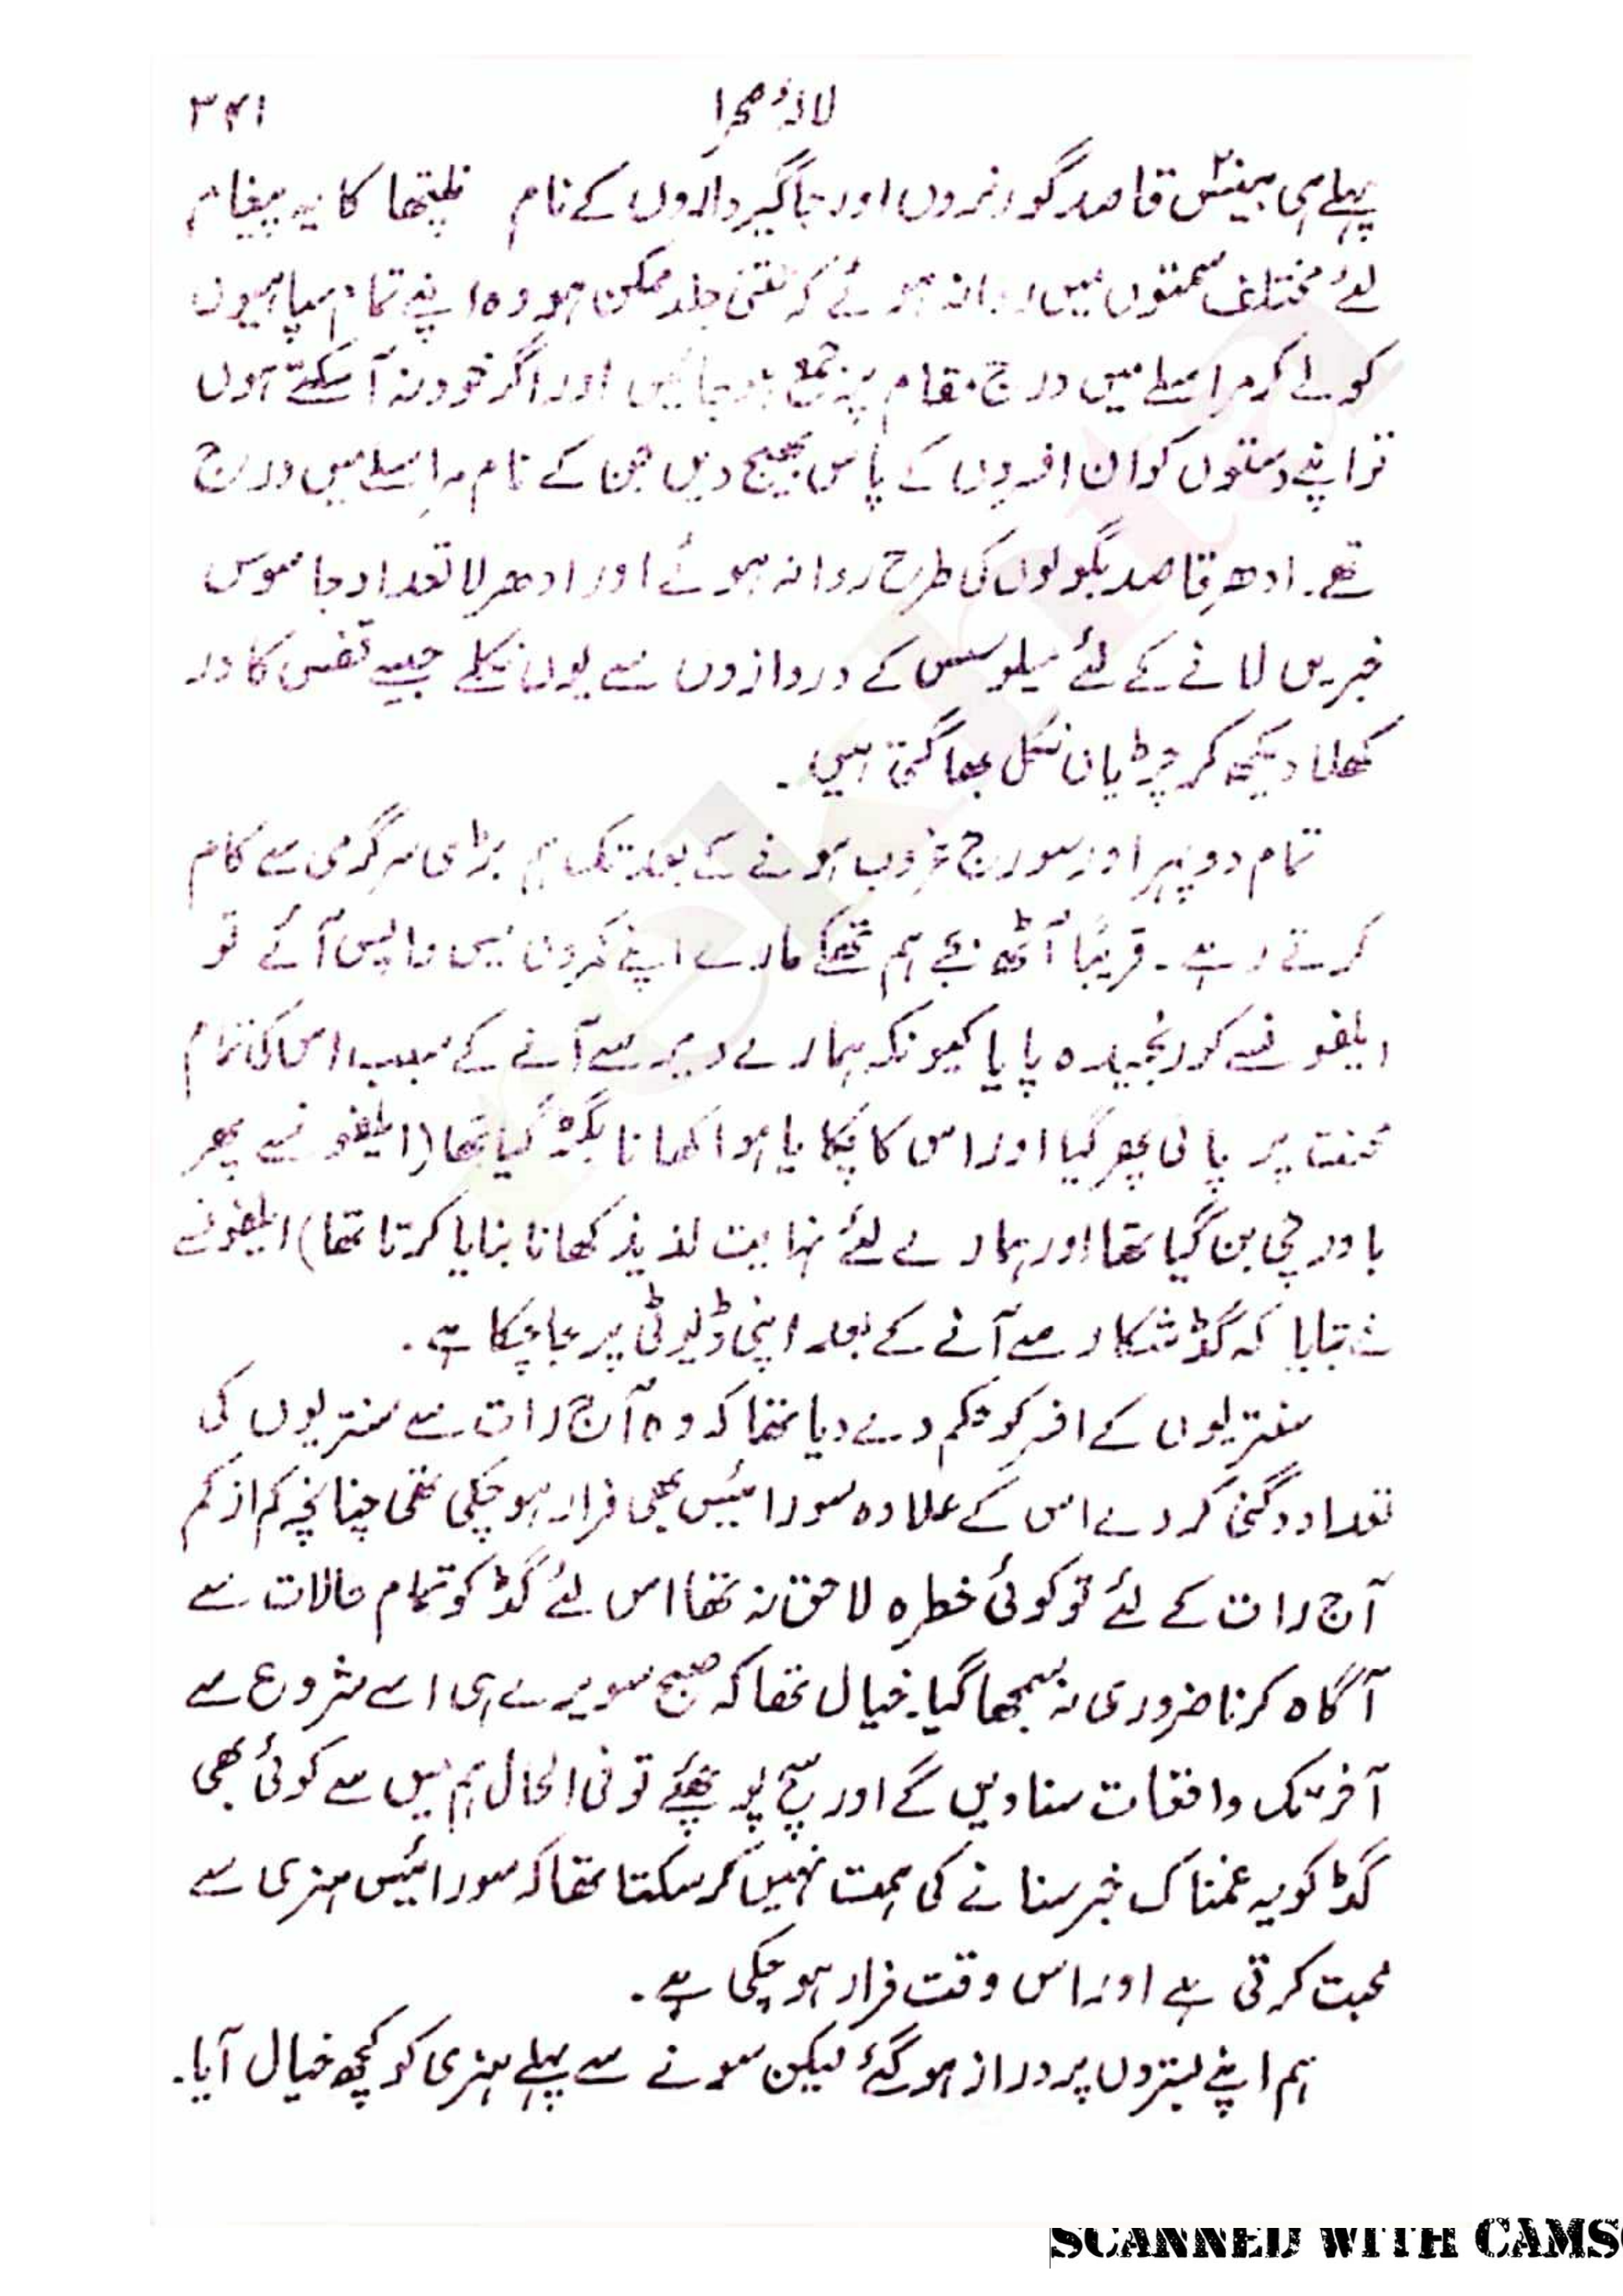 لالۂ صحرا ۳۴۱
پہلے ہی بیسٹوں قاصد گورنروں اور جاگیرداروں کے نام نلیپتھا کا یہ پیغام
لئے مختلف سمتوں میں روانہ ہوئے کہ جتنی جلد ممکن ہو وہ اپنے تمام سپاہیوں
کو لے کر مراسلے میں درج مقام پر جمع ہو جائیں اور اگر خود نہ آ سکتے ہوں
تو اپنے دستوں کو ان افسروں کے پاس بھیج دیں جن کے نام مراسلے میں درج
تھے۔ ادھر قاصد بگولوں کی طرح روانہ ہوئے اور ادھر لا تعداد جاسوس
خبریں لانے کے لئے میلوسس کے دروازوں سے یوں نکلے جیسے قفس کا در
کھلا دیکھ کر چڑیاں نکل بھاگتی ہیں۔
تمام دوپہر اور سورج غروب ہونے کے بعد تک ہم بڑی سرگرمی سے کام
کرتے رہے۔ قریباً آٹھ بجے ہم تھکے مارے اپنے کمروں میں واپس آئے تو
ایلفونسے کو رنجیدہ پایا کیونکہ ہمارے دیر سے آنے کے سبب اس کی تمام
محنت پر پانی پھر گیا اور اس کا پکایا ہوا کھانا بگڑ گیا تھا (ایلفونسے پھر
باورچی بن گیا تھا اور ہمارے لئے نہایت لذیذ کھانا بنایا کرتا تھا) ایلفونسے
نے بتایا کہ گڈ شکار سے آنے کے بعد اپنی ڈیوٹی پر جا چکا ہے۔
سنتریوں کے افسر کو حکم دے دیا تھا کہ وہ آج رات سے سنتریوں کی
تعداد دگنی کر دے اس کے علاوہ سورائیس بھی فرار ہو چکی تھی چنانچہ کم از کم
آج رات کے لئے تو کوئی خطرہ لاحق نہ تھا اس لئے گڈ کو تمام حالات سے
آگاہ کرنا ضروری نہ سمجھا گیا۔ خیال تھا کہ صبح سویرے ہی اسے شروع سے
آخر تک واقعات سنا دیں گے اور سچ پوچھئے تو فی الحال ہم میں سے کوئی بھی
گڈ کو یہ غمناک خبر سنانے کی ہمت نہیں کر سکتا تھا کہ سورائیس ہنری سے
محبت کرتی ہے اور اس وقت فرار ہو چکی ہے۔
ہم اپنے بستروں پر دراز ہو گئے لیکن سونے سے پہلے ہنری کو کچھ خیال آیا۔
SCANNED WITH CAMS